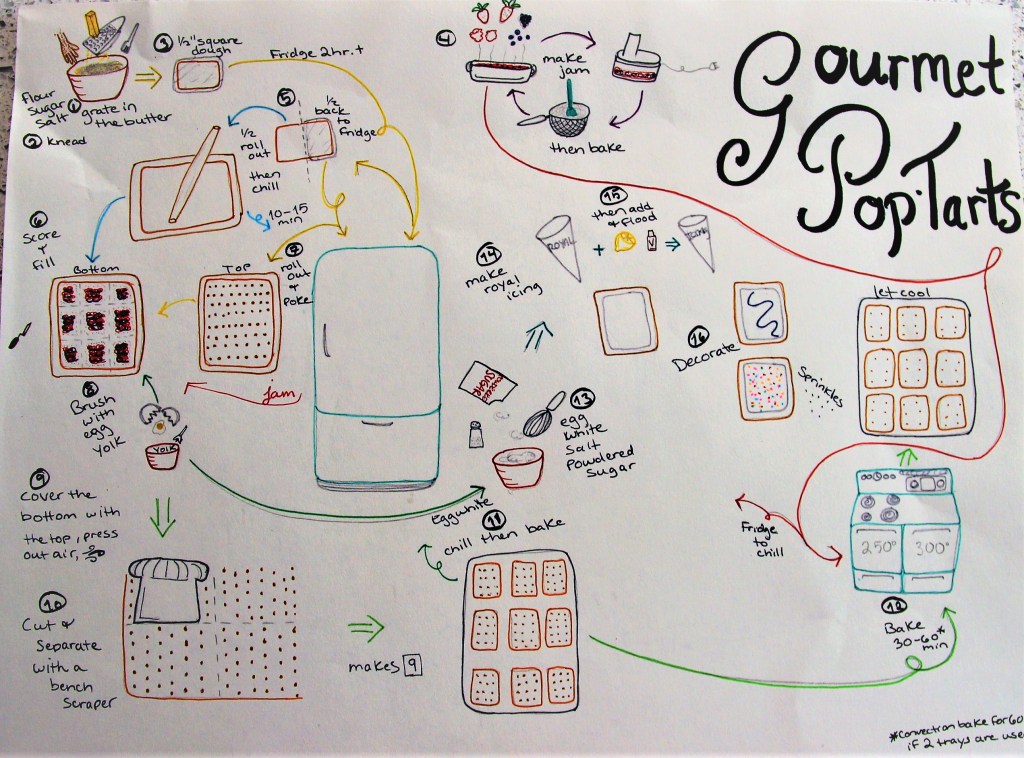 Gourmet
Pop·Tarts
flour
sugar
salt
① grate in
the butter
② knead
③ 1/2" square
dough
Fridge 2hr.+
④
make
jam
then bake
⑤
1/2
roll
out
then
chill
1/2
back
to
Fridge
10-15
min
⑥
Score
+
fill
Bottom
Top
⑦
roll
out
+
poke
jam
⑧
Brush
with
egg
yolk
YOLK
⑨
cover the
bottom with
the top, press
out air,
⑩
Cut &
Separate
with a
bench
scraper
makes 9
⑪
chill then bake
⑫
Bake
30-60*
min
250° 300°
Fridge
to
chill
let cool
Eggwhite
⑬
egg
white
salt
powdered
sugar
POWDERED
SUGAR
⑭
make
royal
icing
ROYAL
+
⑮
then add
& flood
V
⑯
Decorate
Sprinkles
*Convection bake for 60
if 2 trays are use